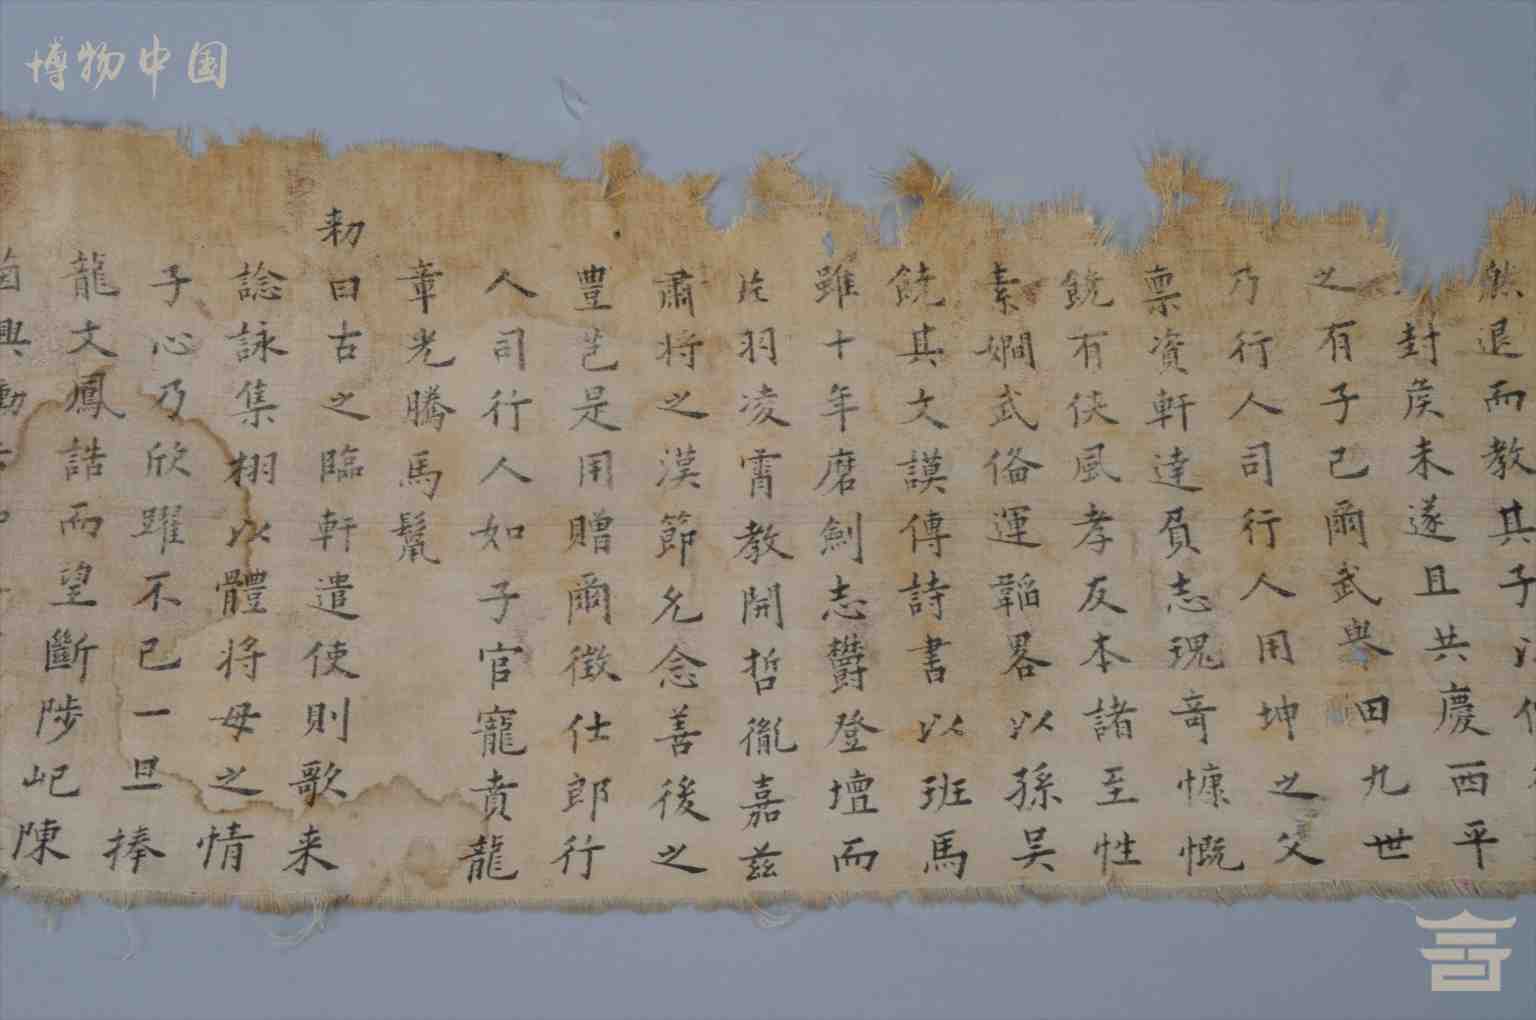 博物中国
然退而教其子
封侯未遂且共慶西平
之有子已爾武與田九世
乃行人司行人用坤之父
禀資軒達負志瑰竒慷慨
饒有俠風孝友本諸至性
素嫺武俻運韜畧以孫吴
饒其文謨傳詩書以班馬
雖十年磨劍志欝登壇而
羽凌霄教開哲胤嘉兹
肅将之漢節允念善後之
豐芑是用贈爾徴仕郎行
人司行人如子官寵賁龍
章光騰馬鬣
勑曰古之臨軒遣使則歌来
諗詠集栩以體将母之情
子心乃欣躍不已一旦捧
龍文鳳誥而望斷陟屺陳
興動